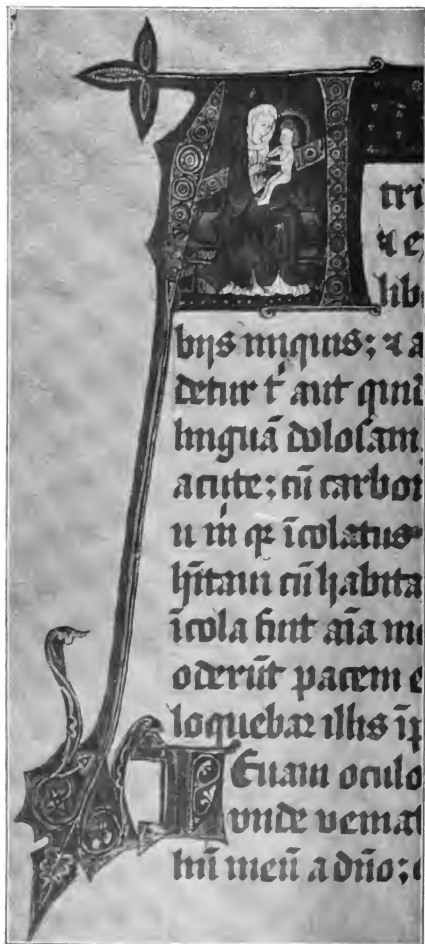 A
tri
⁊ e
lib
bijs iniquis; ⁊ a
detur tⁱ aut quid
linguā dolosam
acute; cū carbon
u m̄ qꝛ īcolatus
h̄itaui cū habita
īcola fuit aīa me
oderūt pacem e
loquebar illis īp
LEuaui oculo
vnde veniat
liū meū a dn̄o;